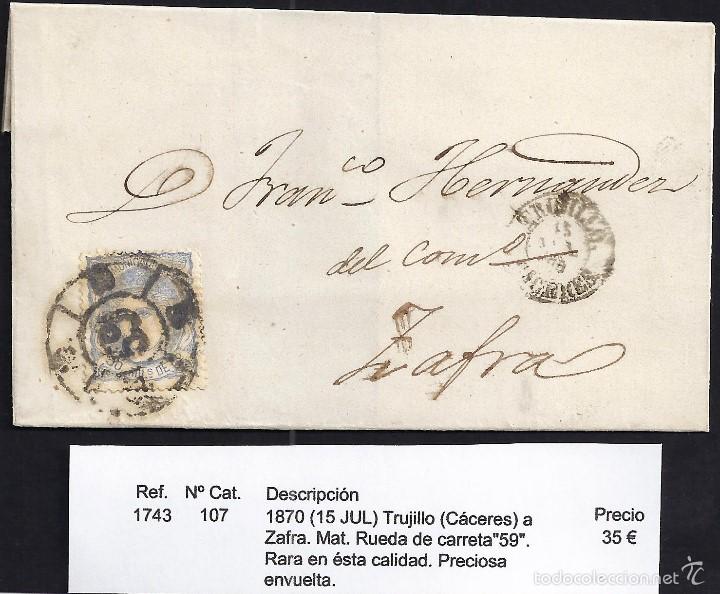 D. Franco Hernandez
del como
Zafra
TRUJILLO
CACERES
59
Ref. Nº Cat. Descripción Precio
1743 107 1870 (15 JUL) Trujillo (Cáceres) a 35 €
Zafra. Mat. Rueda de carreta"59".
Rara en ésta calidad. Preciosa
envuelta.
todocoleccion.net